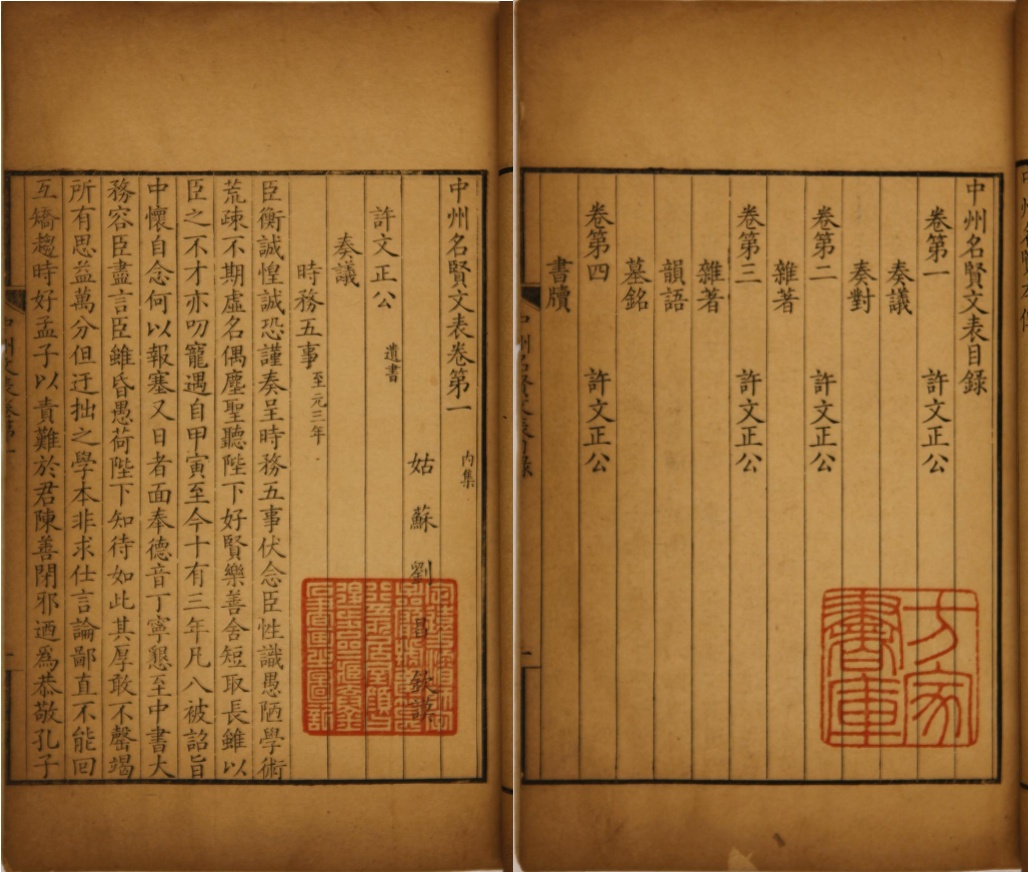 中州名賢文表目録
卷第一　許文正公
奏議
奏對
卷第二　許文正公
雜著
卷第三　許文正公
雜著
韻語
墓銘
卷第四　許文正公
書牘
方家書庫
中州名賢文表卷第一　内集
姑蘇劉昌欽謨
許文正公　遺書
奏議
時務五事　至元三年
臣衡誠惶誠恐謹奏呈時務五事伏念臣性識愚陋學術
荒疎不期虛名偶塵聖聽陛下好賢樂善舍短取長雖以
臣之不才亦叨寵遇自甲寅至今十有三年凡八被詔旨
中懷自念何以報塞又日者面奉德音丁寧懇至中書大
務容臣盡言臣雖昏愚荷陛下知待如此其厚敢不罄竭
所有思益萬分但迂拙之學本非求仕言論鄙直不能回
互矯趨時好孟子以責難於君陳善閉邪迺爲恭敬孔子